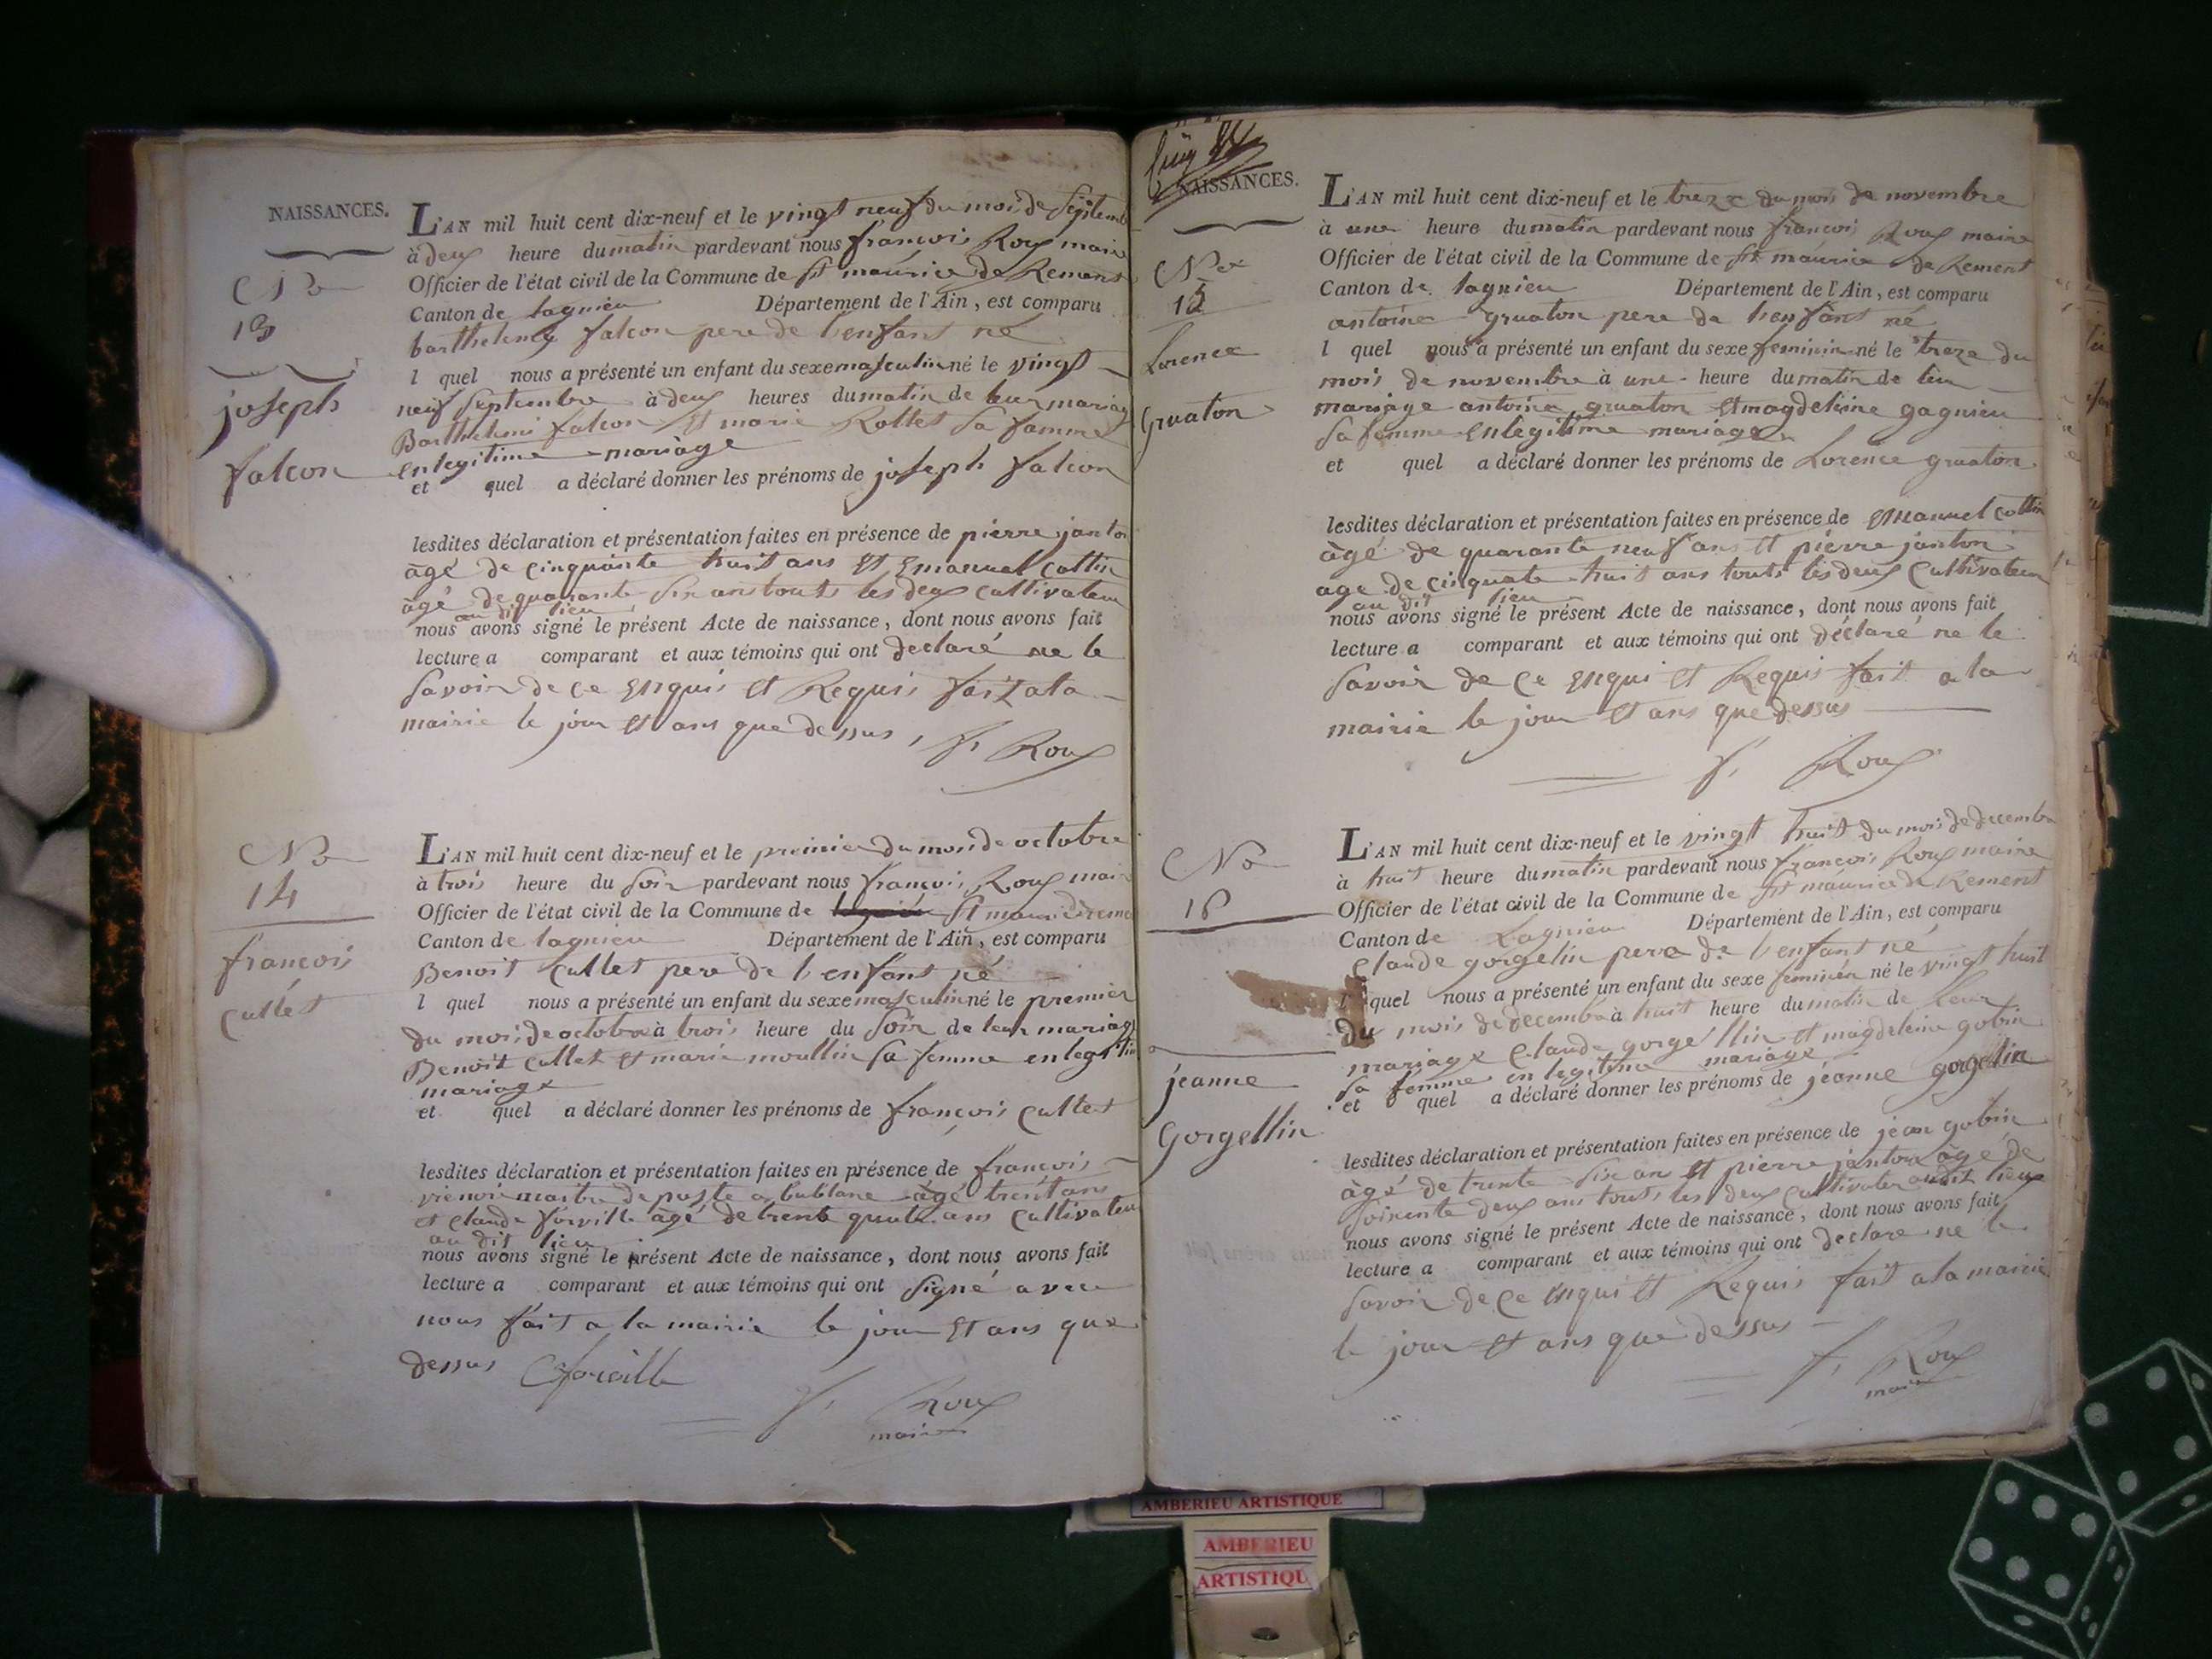 NAISSANCES.
No
13
joseph
falcon
L'AN mil huit cent dix-neuf et le vingt neuf du mois de Septemb
à deux heure du matin pardevant nous francois Roux maire
Officier de l'état civil de la Commune de St maurice de Remens
Canton de lagnieu Département de l'Ain, est comparu
barthelemy falcon pere de l'enfant né
l quel nous a présenté un enfant du sexe masculin né le vingt
neuf Septembre à deux heures du matin de leur mariag
Barthelemi falcon et marie Rollet sa famme
en legitime mariage
et quel a déclaré donner les prénoms de joseph falcon
lesdites déclaration et présentation faites en présence de pierre janton
àgé de cinquante huit ans et Emanuel Cottin
àgé de quarante six ans touts les deux Cultivateur
au dit lieu
nous avons signé le présent Acte de naissance, dont nous avons fait
lecture a comparant et aux témoins qui ont declaré ne le
savoir de ce enquis et Requis fait a la
mairie le jour et ans que dessus, f, Roux
No
14
francois
cullet
L'AN mil huit cent dix-neuf et le primier du mois de octobre
à trois heure du soir pardevant nous françois Roux mair
Officier de l'état civil de la Commune de St maurice
Canton de lagnieu Département de l'Ain, est comparu
Benoit Cullet pere de l'enfant né
l quel nous a présenté un enfant du sexe masculin né le premier
du mois de octobre à trois heure du soir de leur mariag
Benoit Cullet et marie moullin sa femme en legitim
mariage
et quel a déclaré donner les prénoms de françois Cullet
lesdites déclaration et présentation faites en présence de francois
maitre de poste a bublane àgé trent ans
et claude àgé de trente quate ans Cultivateur
au dit lieu
nous avons signé le présent Acte de naissance, dont nous avons fait
lecture a comparant et aux témoins qui ont Signé avec
nous fait a la mairie le jour et ans que
dessus
f, Roux
maire
NAISSANCES.
No
15
Lorence
Gruaton
L'AN mil huit cent dix-neuf et le treze du mois de novembre
à une heure du matin pardevant nous francois Roux maire
Officier de l'état civil de la Commune de St maurice de Rement
Canton de lagnieu Département de l'Ain, est comparu
antoine gruaton pere de l'enfant né
l quel nous a présenté un enfant du sexe feminin né le treze du
mois de novembre à une heure du matin de leur
mariage antoine gruaton et magdeleine gagnieu
sa femme en legitime mariage
et quel a déclaré donner les prénoms de Lorence gruaton
lesdites déclaration et présentation faites en présence de Emanuel Cottin
àgé de quarante neuf ans et pierre janton
age de cinquate huit ans touts les deux Cultivateur
au dit lieu
nous avons signé le présent Acte de naissance, dont nous avons fait
lecture a comparant et aux témoins qui ont déclaré ne le
savoir de ce enqui et Requis fait a la
mairie le jour et ans que dessus
f, Roux
No
16
jeanne
Gorgellin
L'AN mil huit cent dix-neuf et le vingt huit du mois de decembre
à huit heure du matin pardevant nous francois Roux maire
Officier de l'état civil de la Commune de St maurice de Rement
Canton de Lagnieu Département de l'Ain, est comparu
Claude gorgelin pere de l'enfant né
l quel nous a présenté un enfant du sexe feminin né le vingt huit
du mois de decembre à huit heure du matin de leur
mariage Claude gorgellin et magdeleine gobin
sa femme en legitime mariage
et quel a déclaré donner les prénoms de jeanne gorgellin
lesdites déclaration et présentation faites en présence de jean gobin
àgé de trente six ans et pierre janton àgé de
soixente deux ans touts les deux Cultivater audit lieux
nous avons signé le présent Acte de naissance, dont nous avons fait
lecture a comparant et aux témoins qui ont declare ne le
savoir de ce enqui et Requis fait a la mairie
le jour et ans que dessus
f, Roux
maire
AMBERIEU ARTISTIQUE
AMBERIEU
ARTISTIQU